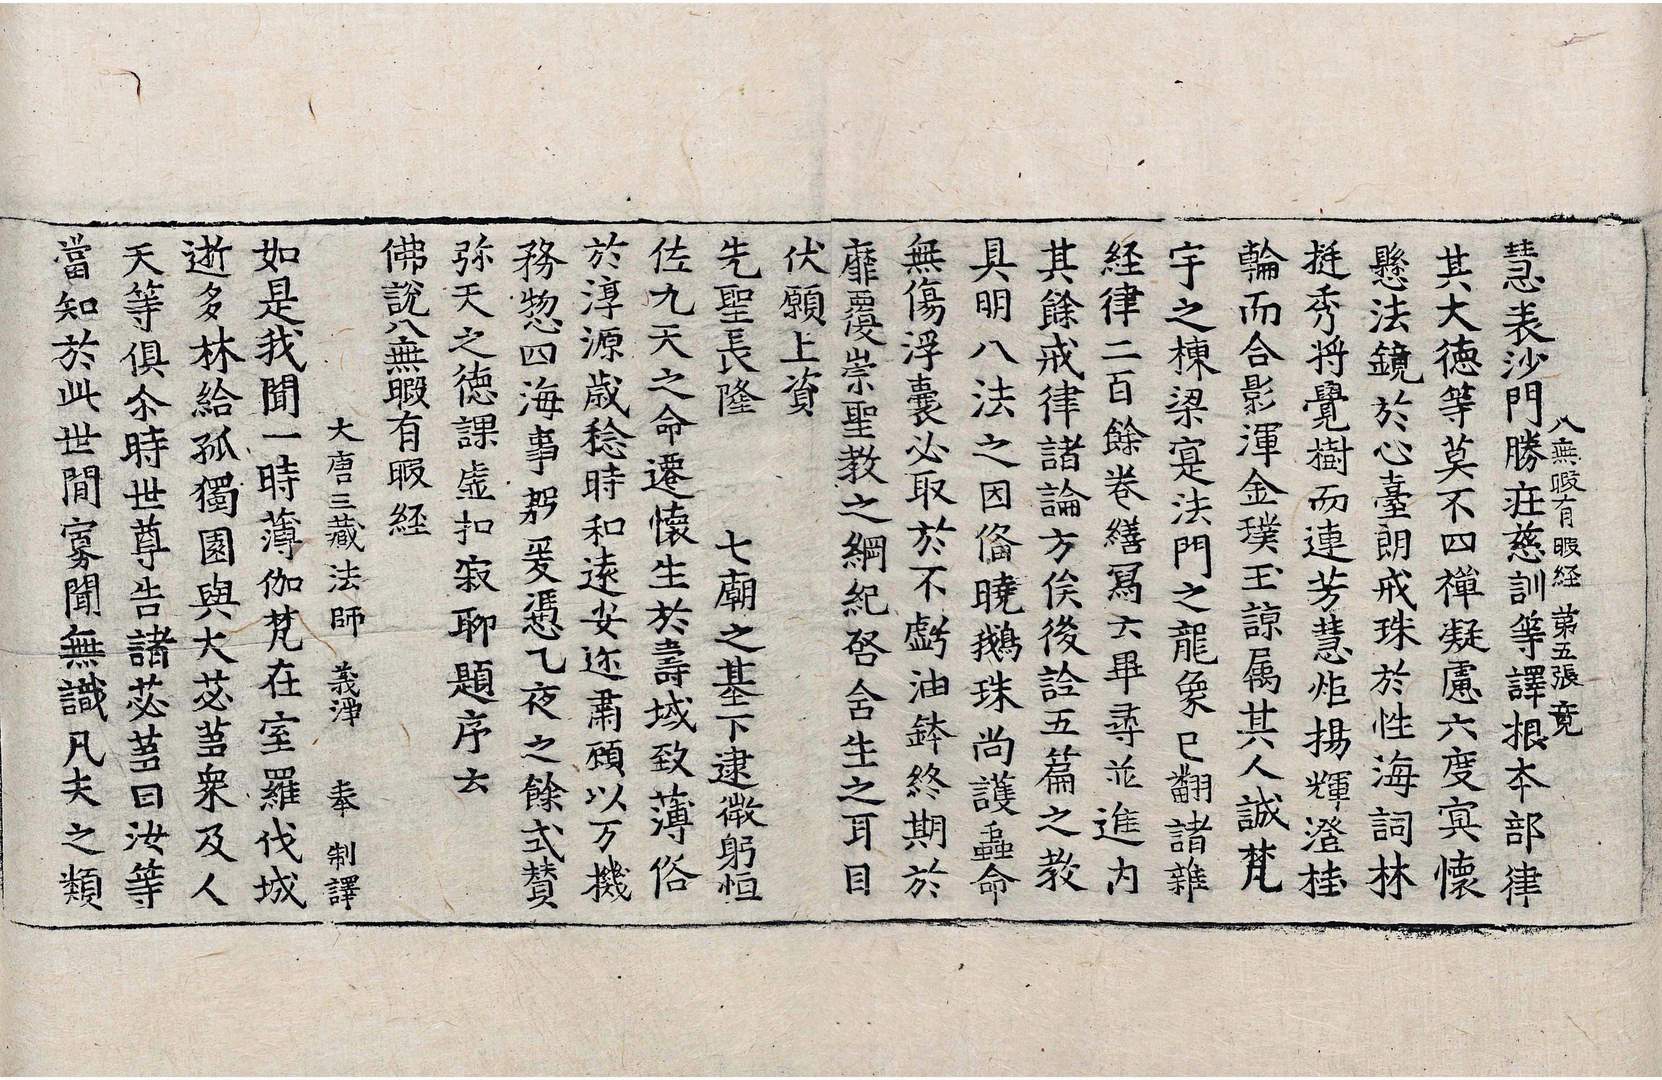 八無暇有暇経 第五張 竟
慧表沙門勝荘慈訓等譯根本部律
其大徳等莫不四禪凝慮六度寘懐
懸法鏡於心臺朗戒珠於性海詞林
挺秀将覺樹而連芳慧炬揚輝澄桂
輪而合影渾金璞玉諒属其人誠梵
宇之棟梁寔法門之龍象已翻諸雜
経律二百餘巻繕寫云畢尋並進内
其餘戒律諸論方俟後詮五篇之教
具明八法之因俻曉鵝珠尚護蟲命
無傷浮囊必取於不虧油鉢終期於
靡覆崇聖教之綱紀啓含生之耳目
伏願上資
先聖長隆 七廟之基下逮微躬恒
佐九天之命遷懐生於壽域致薄俗
於淳源歳稔時和遠安迩肅顧以万機
務惣四海事殷爰憑乙夜之餘式賛
弥天之徳課虚扣寂聊題序云
佛說八無暇有暇経
大唐三藏法師 義淨 奉 制譯
如是我聞一時薄伽梵在室羅伐城
逝多林給孤獨園與大苾芻衆及人
天等俱尒時世尊告諸苾芻曰汝等
當知於此世間寡聞無識凡夫之類